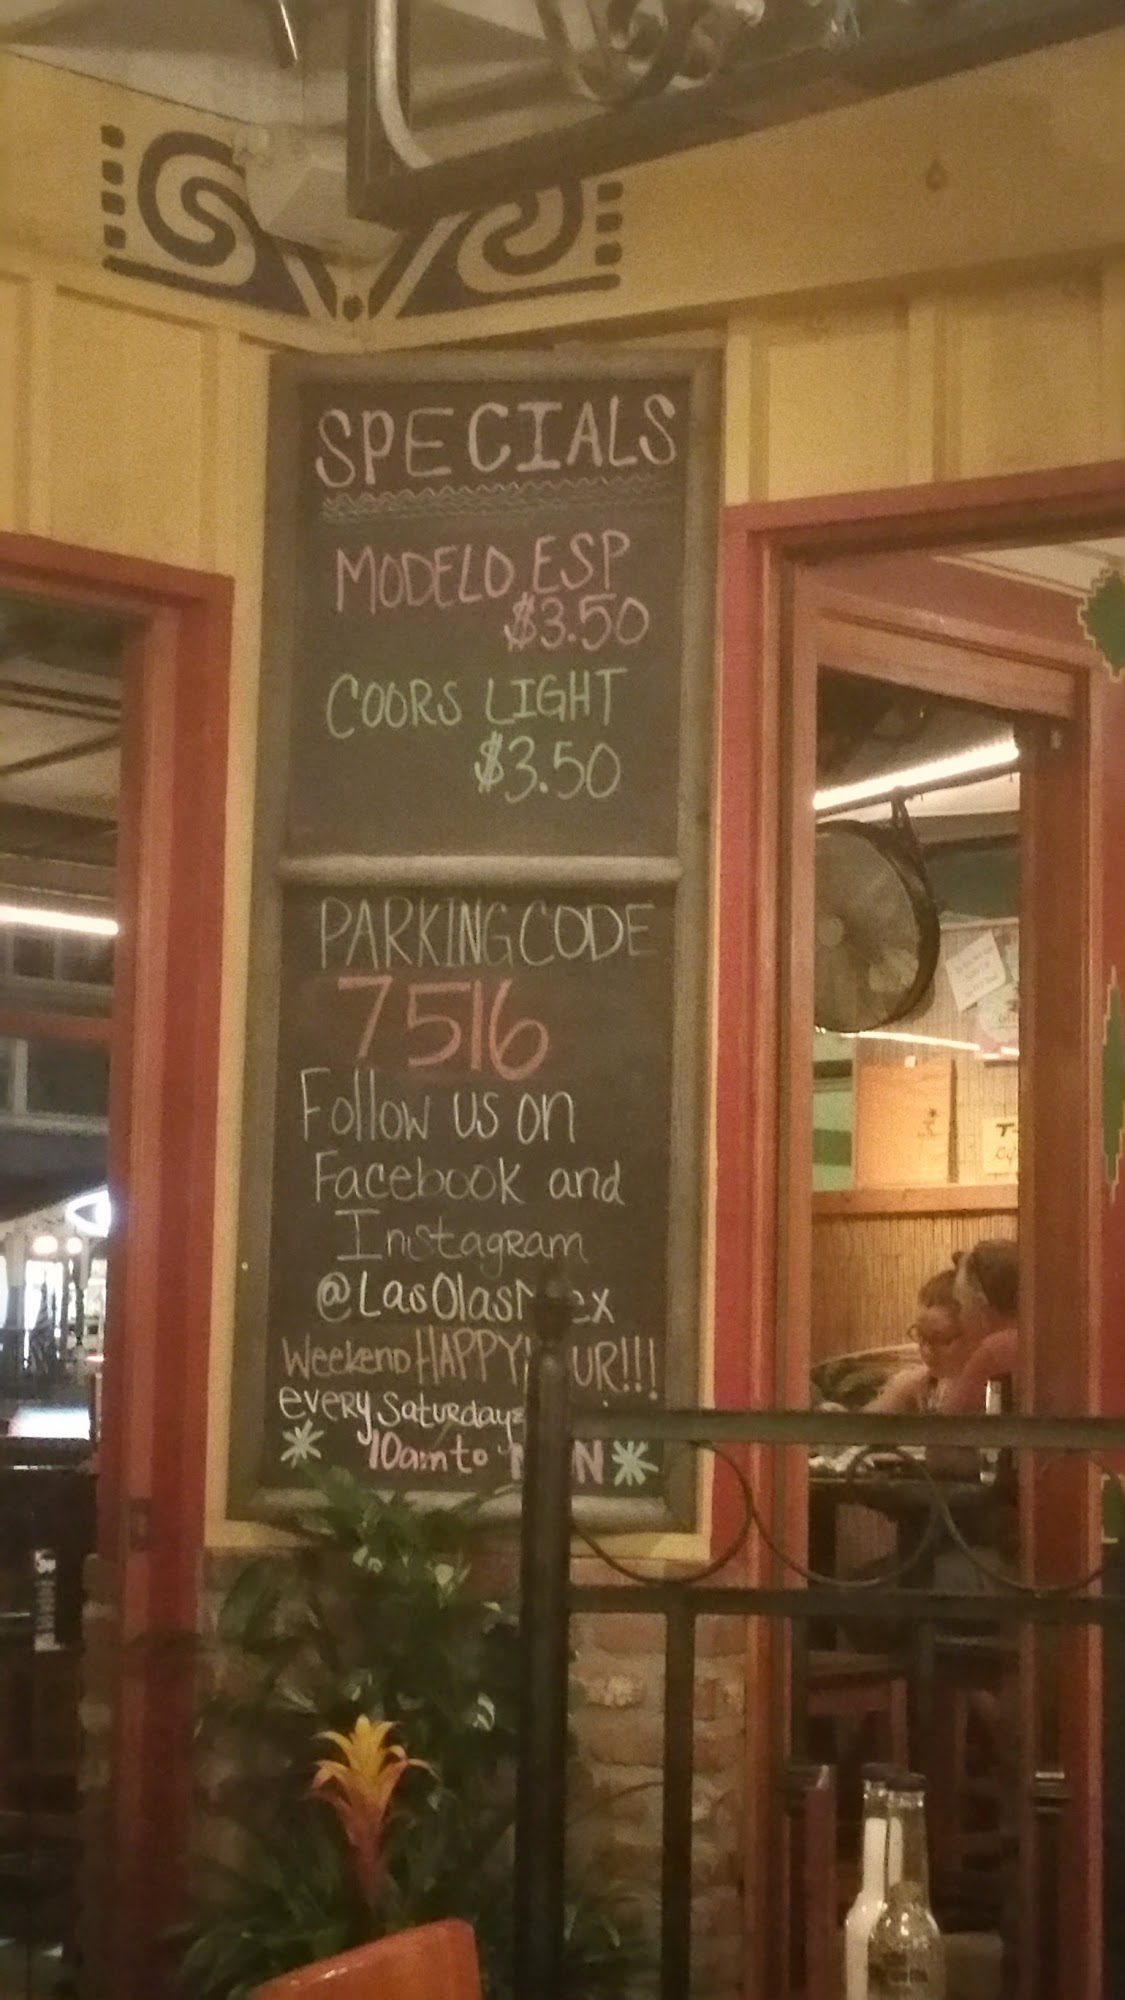 SPECIALS
MODELO ESP
$3.50
COORS LIGHT
$3.50
PARKING CODE
7516
Follow us on
Facebook and
Instagram
@LasOlasMex
Weekend HAPPY HOUR!!!
every Saturday
10am to